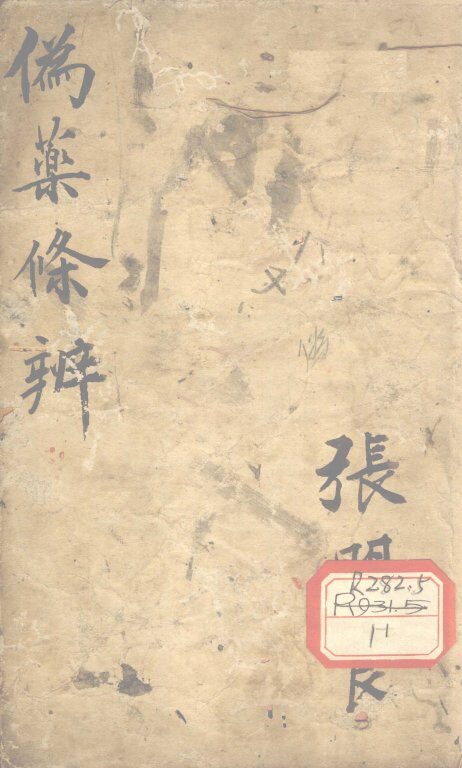 偽藥條辨
張
R282.5
R931.5
H
又